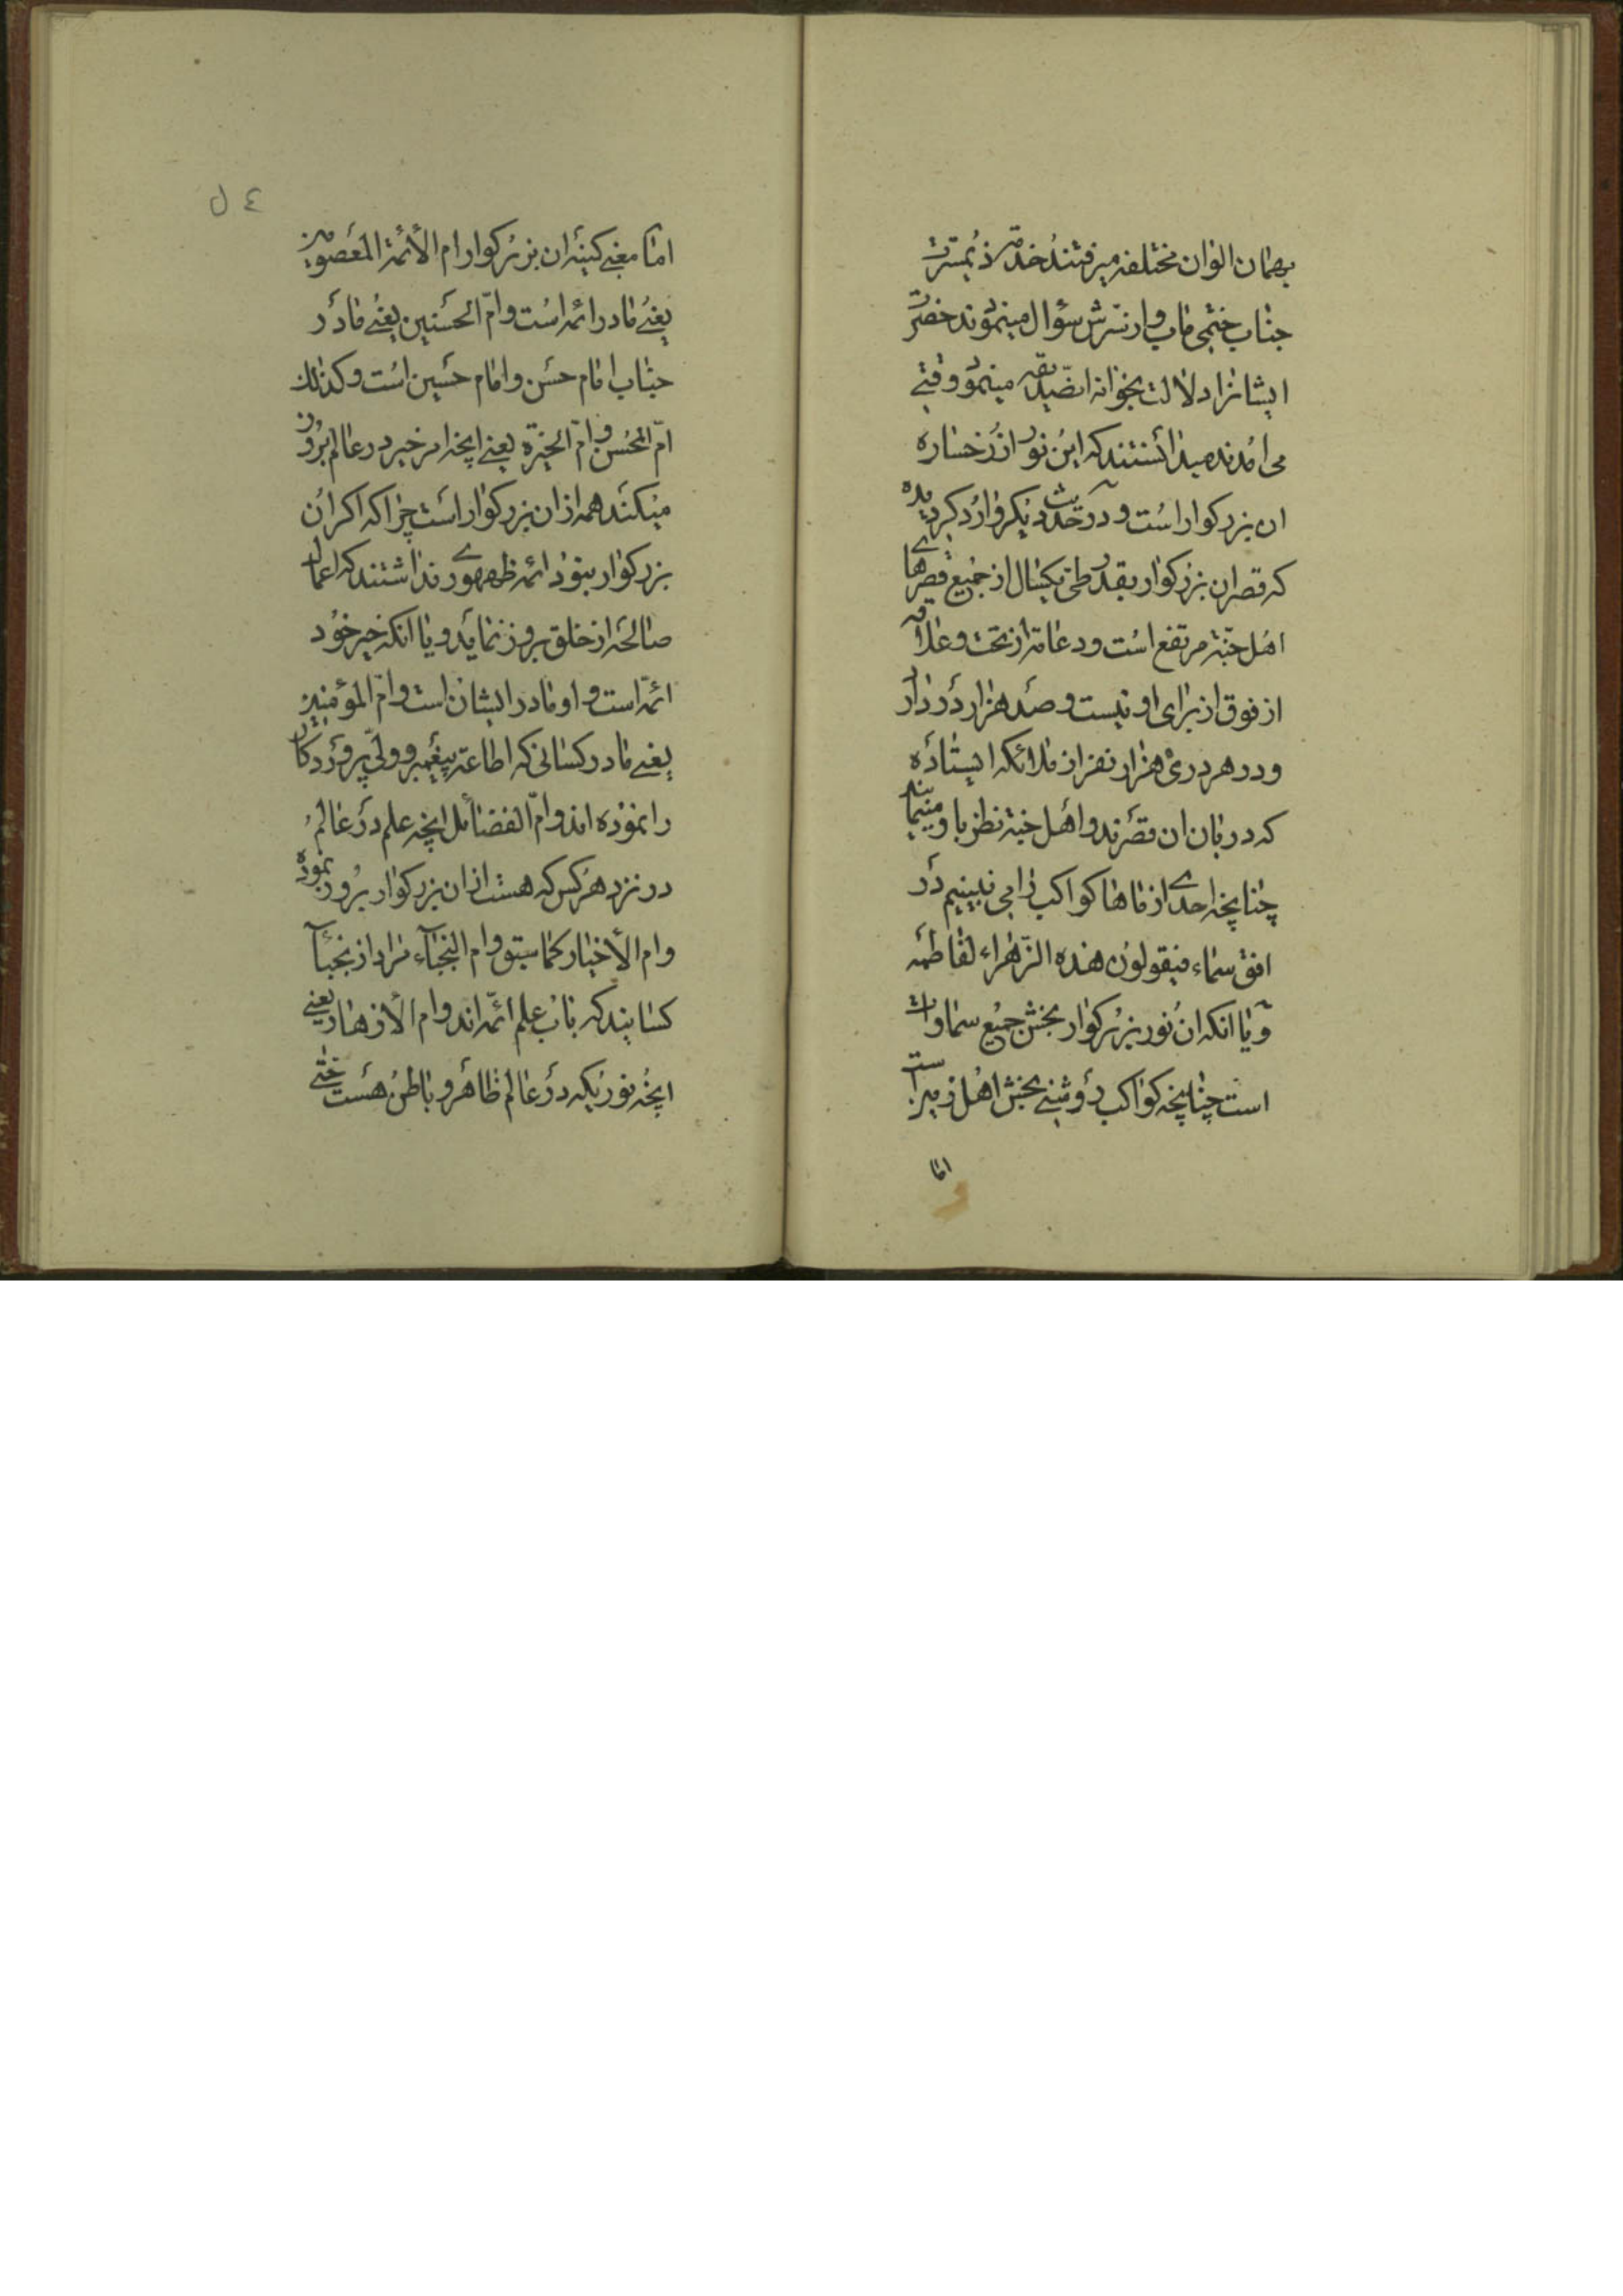 بهمان الوان مختلفه میرفتند خدمة ذیمسرت
جناب ختمی ماب و از سرش سؤال مینمودند حضرت
ایشانرا دلالت بخوانه انصدیقه مینمود وقتی
می امدند میدانستند که این نور از رخساره
ان بزرکوار است و در حدیث دیکر وارد کردیده
که قصر ان بزرکوار بقدر طی یکسال از جمیع قصرهای
اهل جنة مرتفع است و دعامة از تحت و علاقه
از فوق از برای او نیست و صد هزار در دارد
و در هر دری هزار نفر از ملائکه ایستاده
که دربان ان قصرند و اهل جنة نظر باو مینمایند
چنانچه احدی از ماها کواکب را می نبینیم در
افق سماء فیقولون هذه الزهراء لفاطمه
و یا انکه ان نور بزرکوار بخش جمیع سماوات
است چنانچه کواکب روشنی بخش اهل زمین است
اما
٤٥
اما معنی کنیه ان بزرکوار ام الأئمة المعصومین
یعنی مادر ائمه است و ام الحسنین یعنی مادر
جناب امام حسن و امام حسین است و کذلك
ام المحسن و ام الخیرة یعنی انچه امر خیر در عالم بروز
میکند همه از ان بزرکوار است چرا که اکر ان
بزرکوار نبود ائمه ظهوری نداشتند که اعمال
صالحه از خلق بروز نماید و یا انکه خیر خود
ائمه است و او مادر ایشان است و ام المؤمنین
یعنی مادر کسانی که اطاعة پیغمبر و ولی پروردکار
را نموده اند و ام الفضائل انچه علم در عالم
در نزد هر کس که هست از ان بزرکوار بروز نموده
و ام الأخیار کما سبق و ام النجباء مراد از نجباء
کسانیند که باب علم ائمه اند و ام الأزهار یعنی
انچه نوریکه در عالم ظاهر و باطن هست حتی